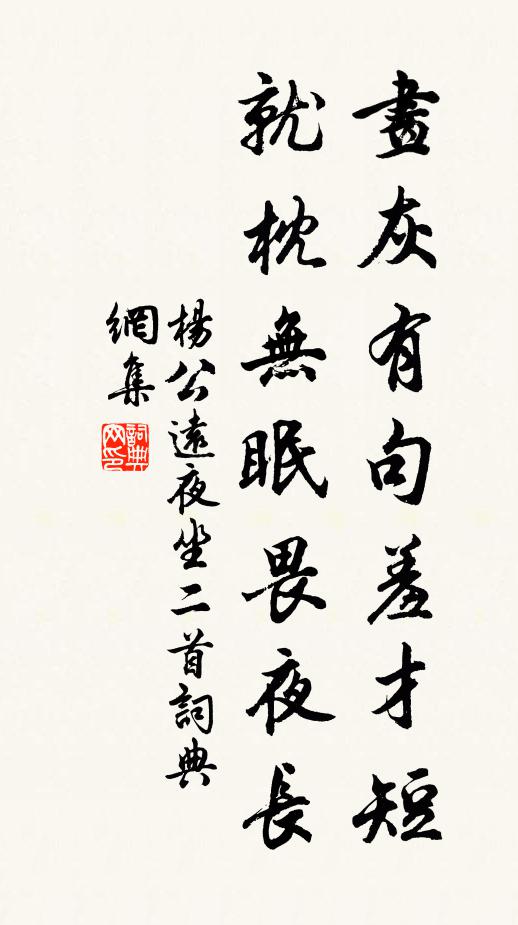 畫灰有句羞才短
就枕無眠畏夜長
楊公遠夜坐二首詞典
網集
詞典網印